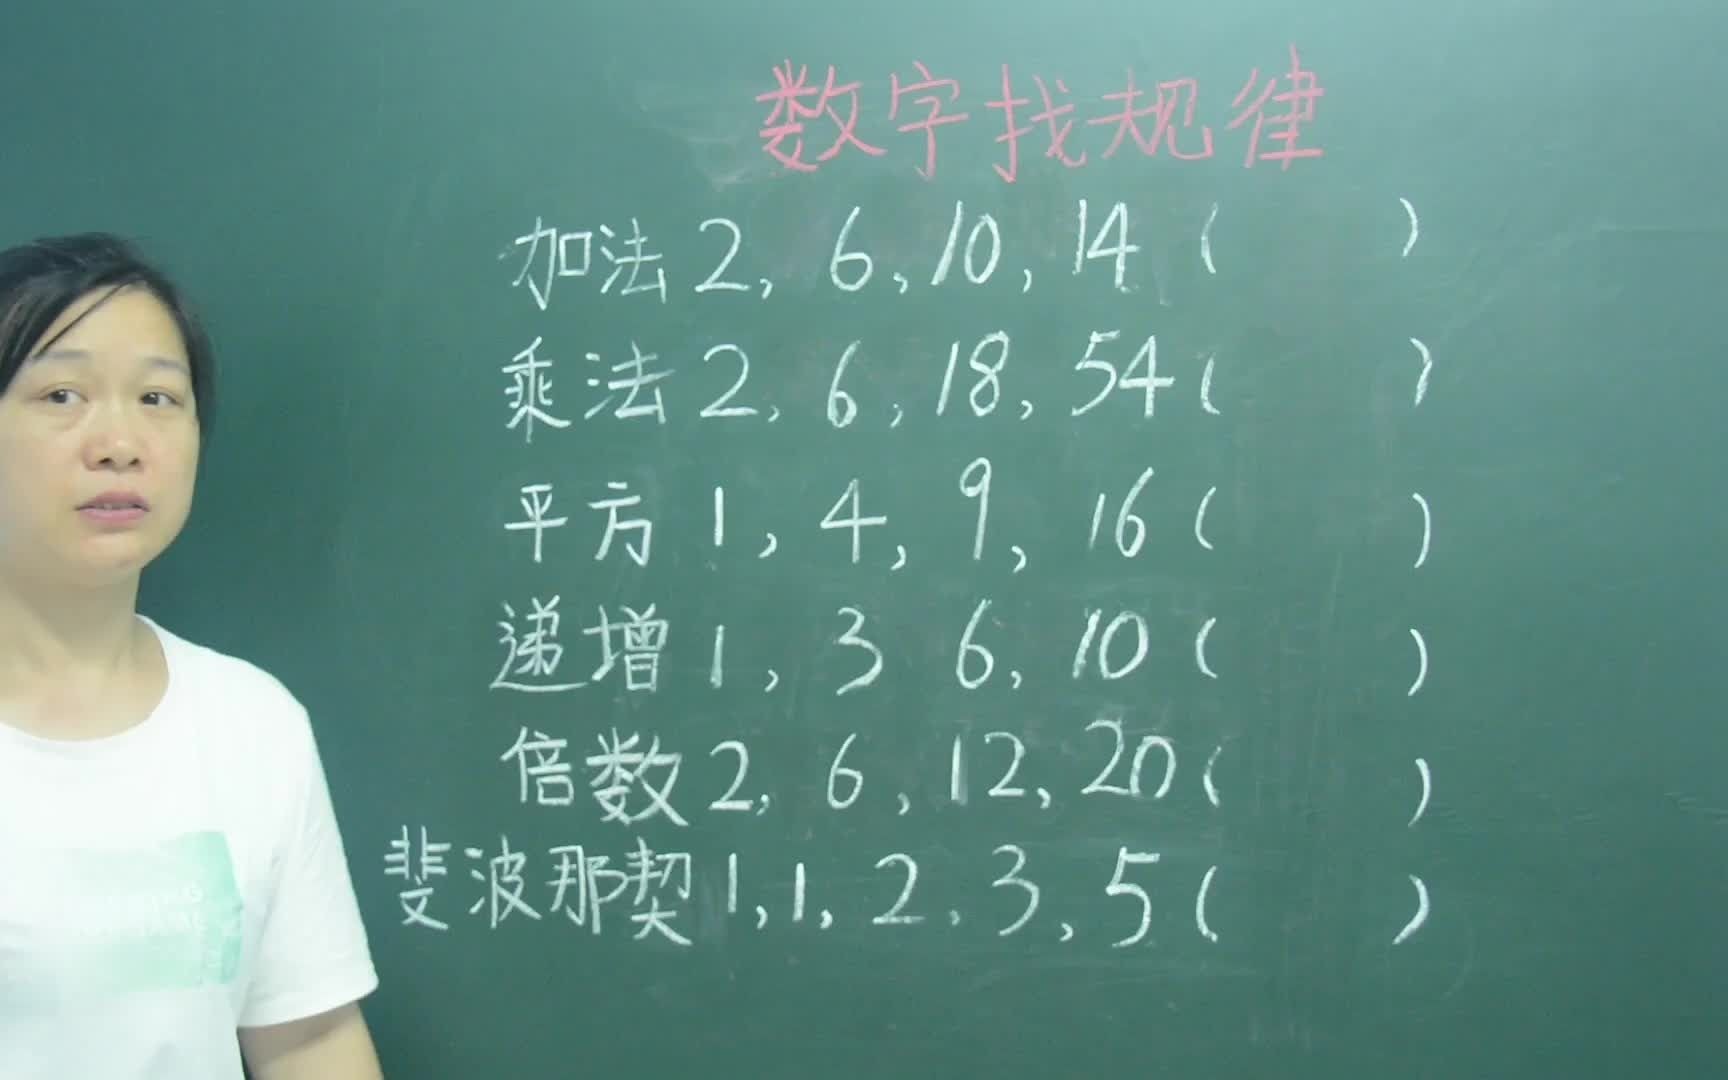 数字找规律
加法 2, 6, 10, 14 (    )
乘法 2, 6, 18, 54 (    )
平方 1, 4, 9, 16 (    )
递增 1, 3 6, 10 (    )
倍数 2, 6, 12, 20 (    )
斐波那契 1, 1, 2, 3, 5 (    )